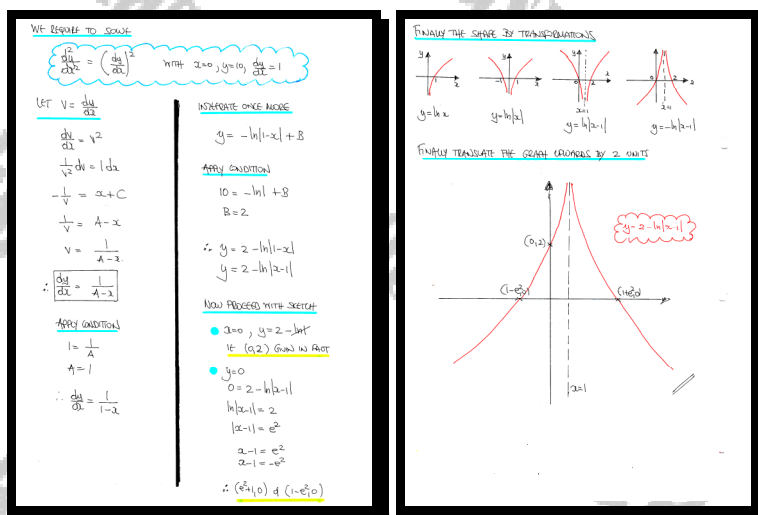 WE REQUIRE TO SOLVE
d²y/dx² = (dy/dx)² WITH x=0, y=10, dy/dx = 1
LET V = dy/dx
dv/dx = v²
1/v² dv = 1 dx
-1/v = x + C
1/v = A - x
v = 1/(A-x)
∴ dy/dx = 1/(A-x)
APPLY CONDITION
1 = 1/A
A = 1
∴ dy/dx = 1/(1-x)
INTEGRATE ONCE MORE
y = -ln|1-x| + B
APPLY CONDITION
10 = -ln1 + B
B = 2
∴ y = 2 - ln|1-x|
y = 2 - ln|x-1|
NOW PROCEED WITH SKETCH
x=0, y = 2 - ln1
IE (0,2) GIVEN IN FACT
y=0
0 = 2 - ln|x-1|
ln|x-1| = 2
|x-1| = e²
x-1 = e²
x-1 = -e²
∴ (e²+1,0) & (1-e²,0)
FINALLY THE SHAPE BY TRANSFORMATIONS
y x 1
y = ln x
y x -1 1
y = ln|x|
y x 0 2
x=1
y = ln|x-1|
y x 0 2
x=1
y = -ln|x-1|
FINALLY TRANSLATE THE GRAPH UPWARDS BY 2 UNITS
y = 2 - ln|x-1|
(0,2)
(1-e²,0)
(1+e²,0)
x=1